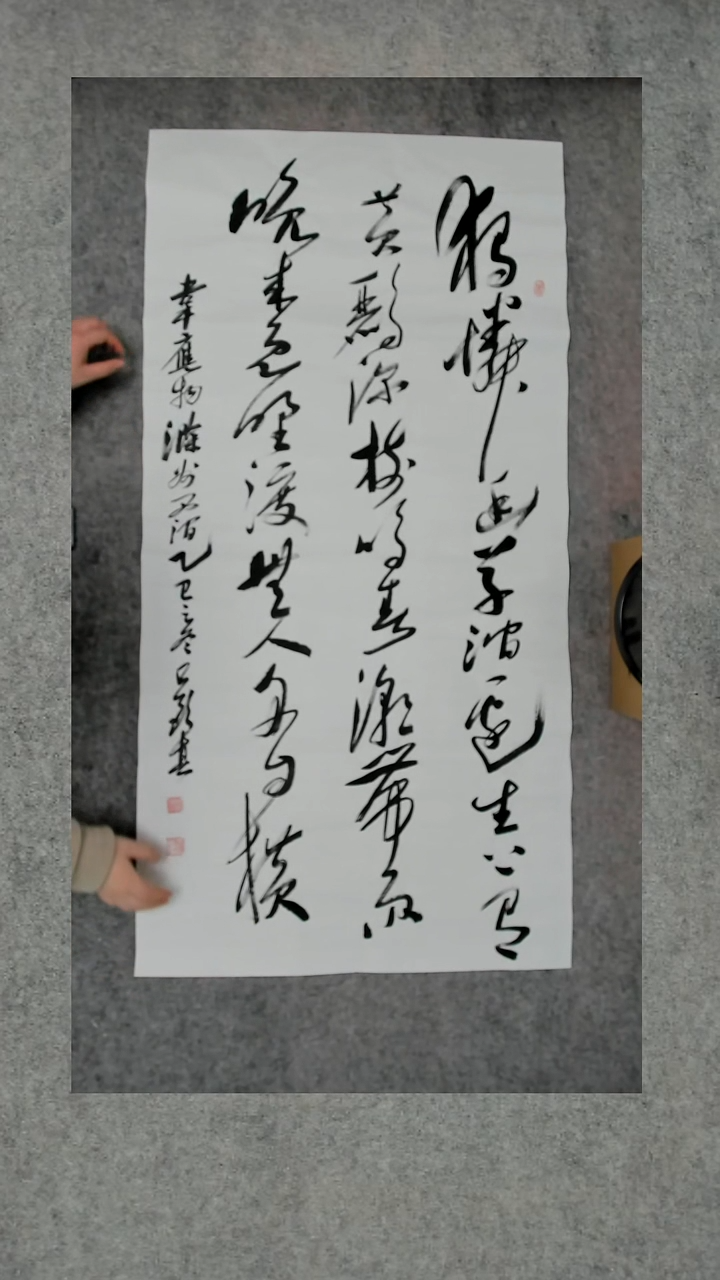 獨憐幽草澗邊生上有
黃鸝深樹鳴春潮帶雨
晚來急野渡無人舟自橫
韋應物滁州西澗乙巳之冬書